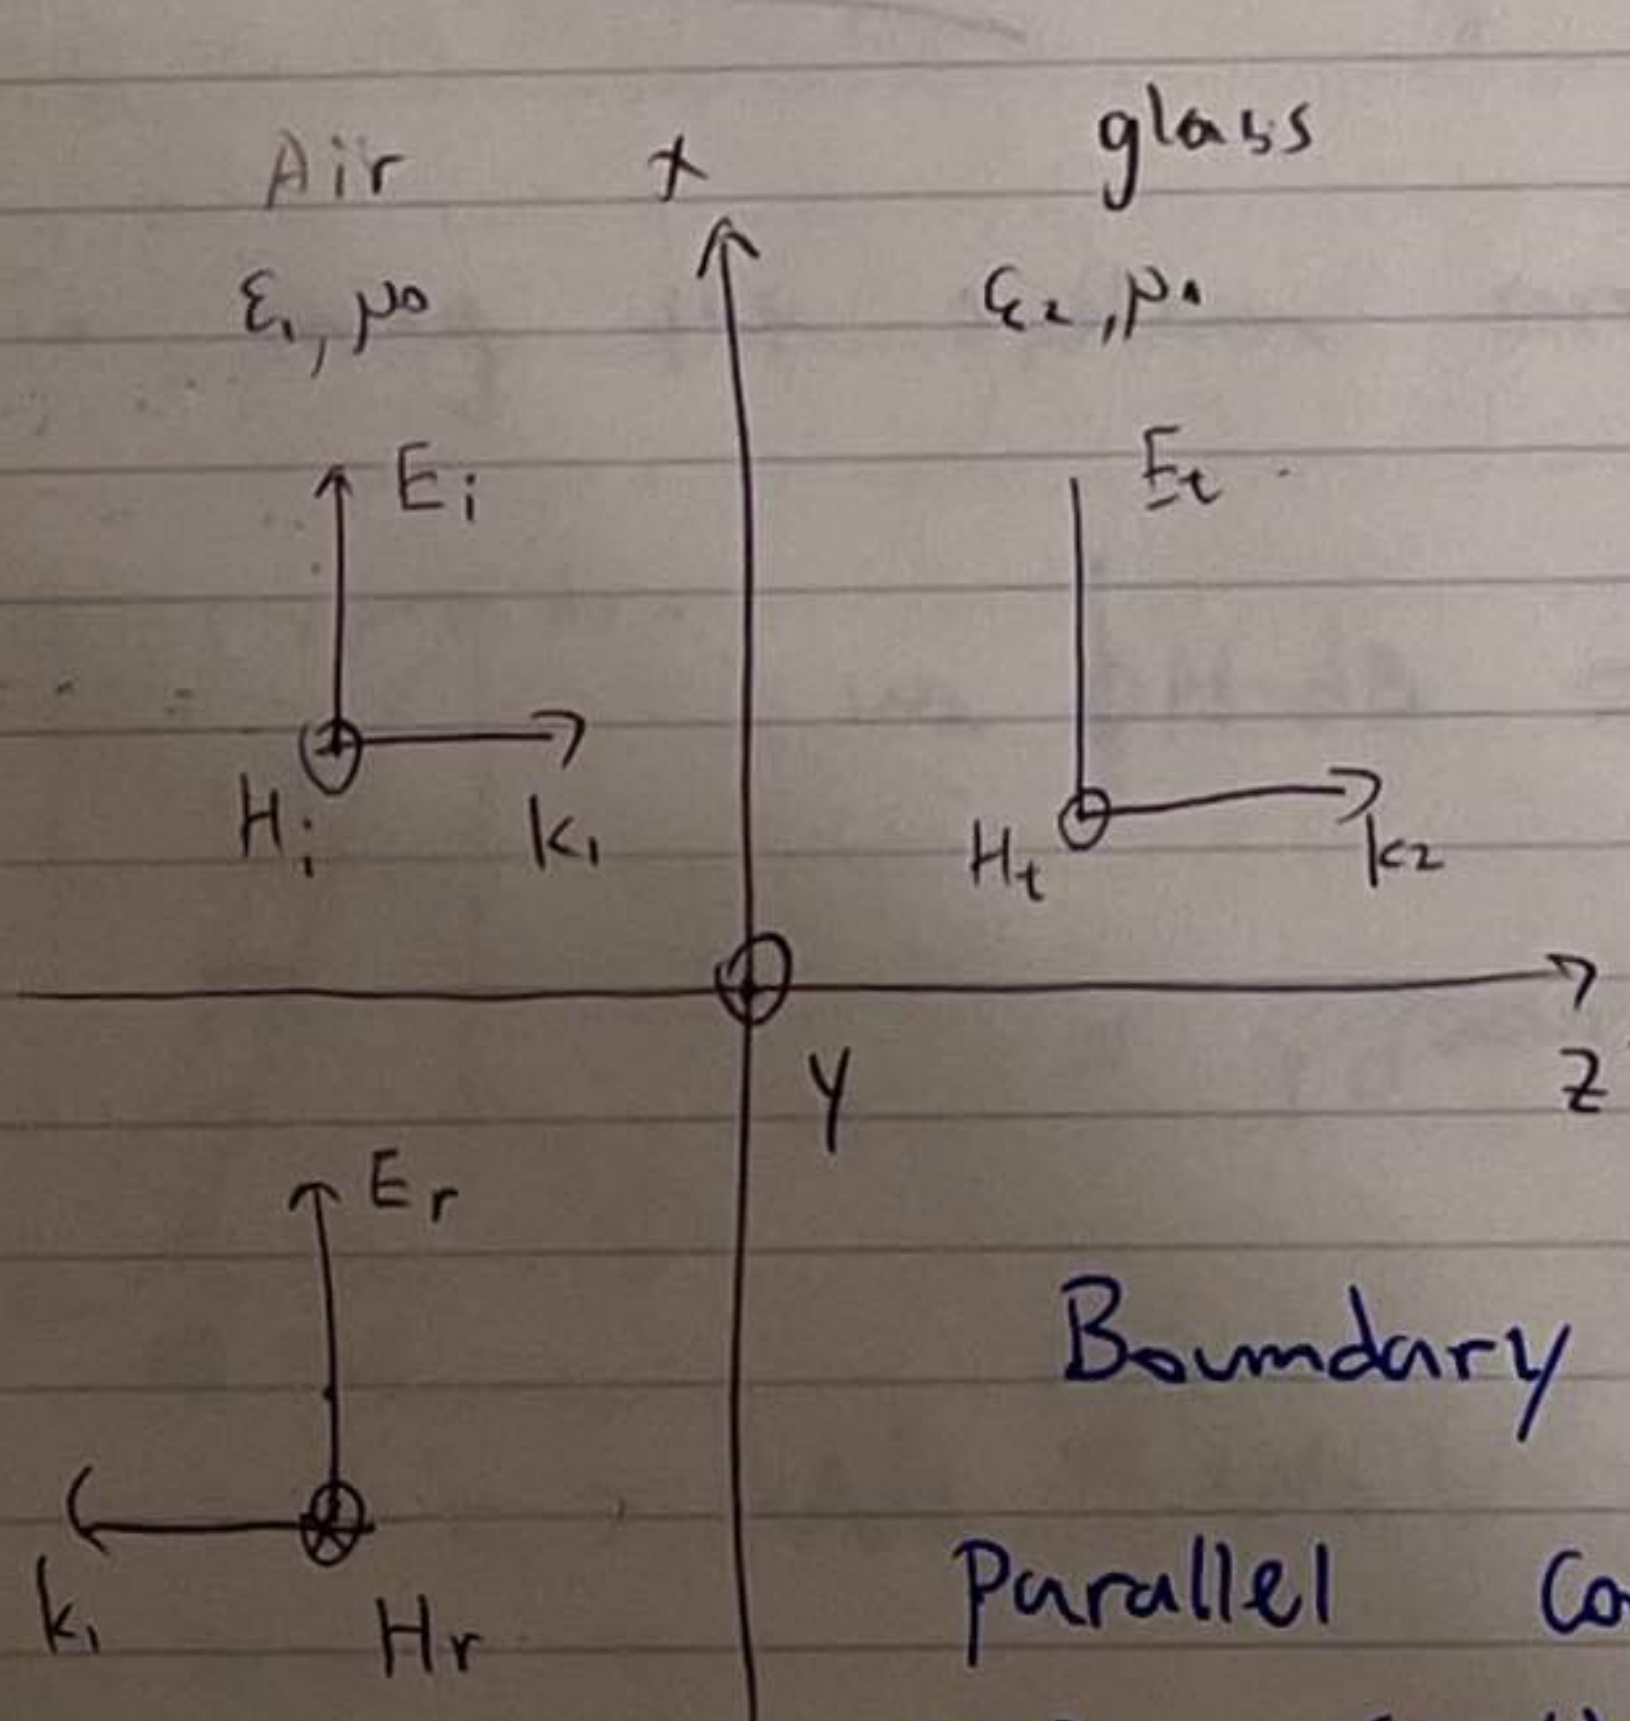 Air x glass
ε₁, μ₀ ε₂, μ₀
Eᵢ Eₜ
Hᵢ k₁ Hₜ k₂
y z
Eᵣ
Boundary
k₁ Hᵣ Parallel Co